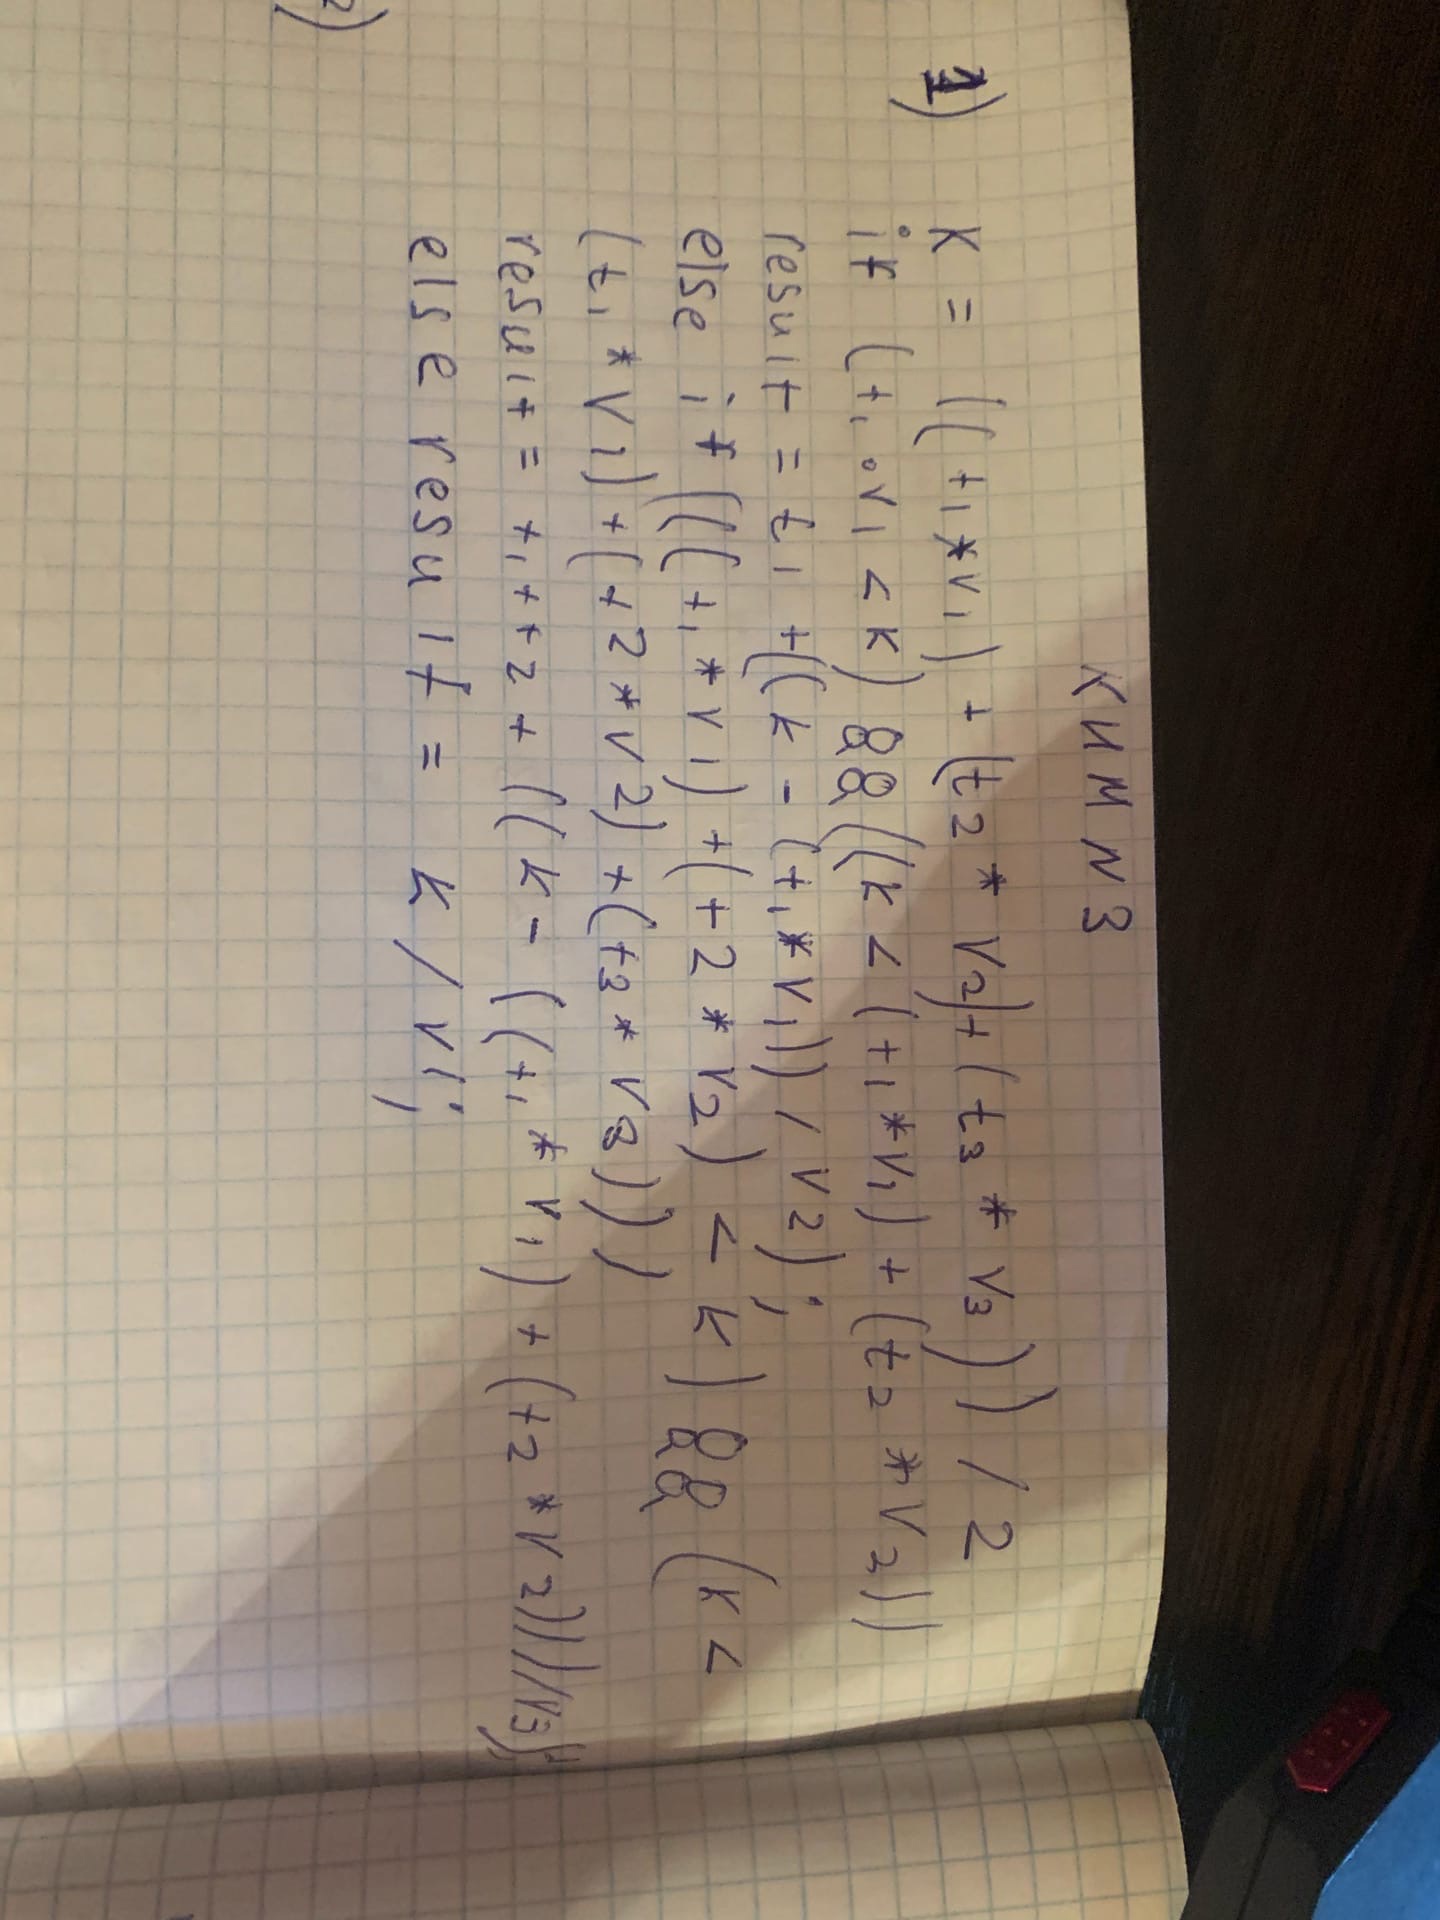 КИМ N3
1) K = ((t1*v1) + (t2 * v2) + (t3 * v3)) / 2
if (t1 * v1 < k) && ((k < (t1*v1) + (t2 * v2))
result = t1 + ((k - (t1*v1)) / v2);
else if (((t1 * v1) + (t2 * v2) < k) && (k <
(t1 * v1) + (t2 * v2) + (t3 * v3)))
result = t1 + t2 + ((k - ((t1 * v1) + (t2 * v2))) / v3);
else result = k / v1;
2)